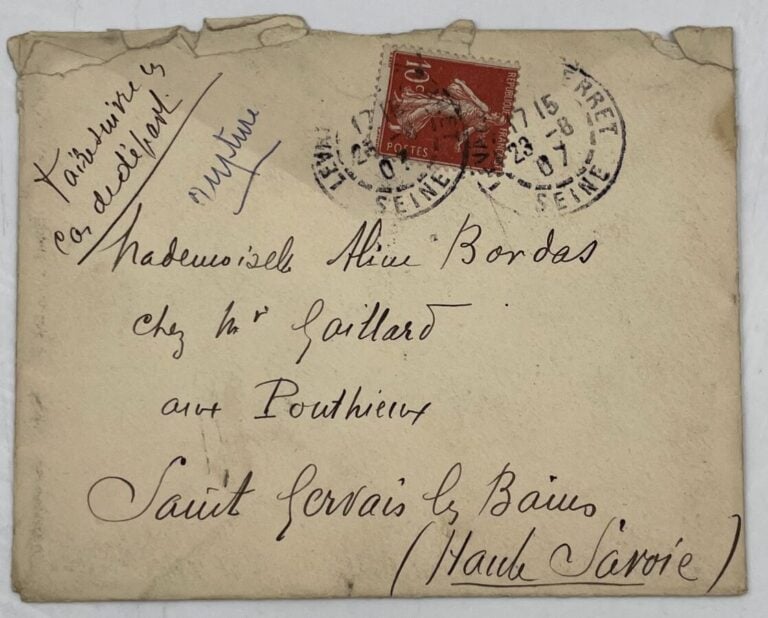 faire suivre en
cas de départ.
rupture
10c
REPUBLIQUE FRANÇAISE
POSTES
LEVALL
17
07
SEINE
ERRET
17 15
23 -8
07
SEINE
Mademoiselle Aline Bordas
chez Mr Gaillard
aux Pouthieux
Saint Gervais les Bains
(Haute Savoie)